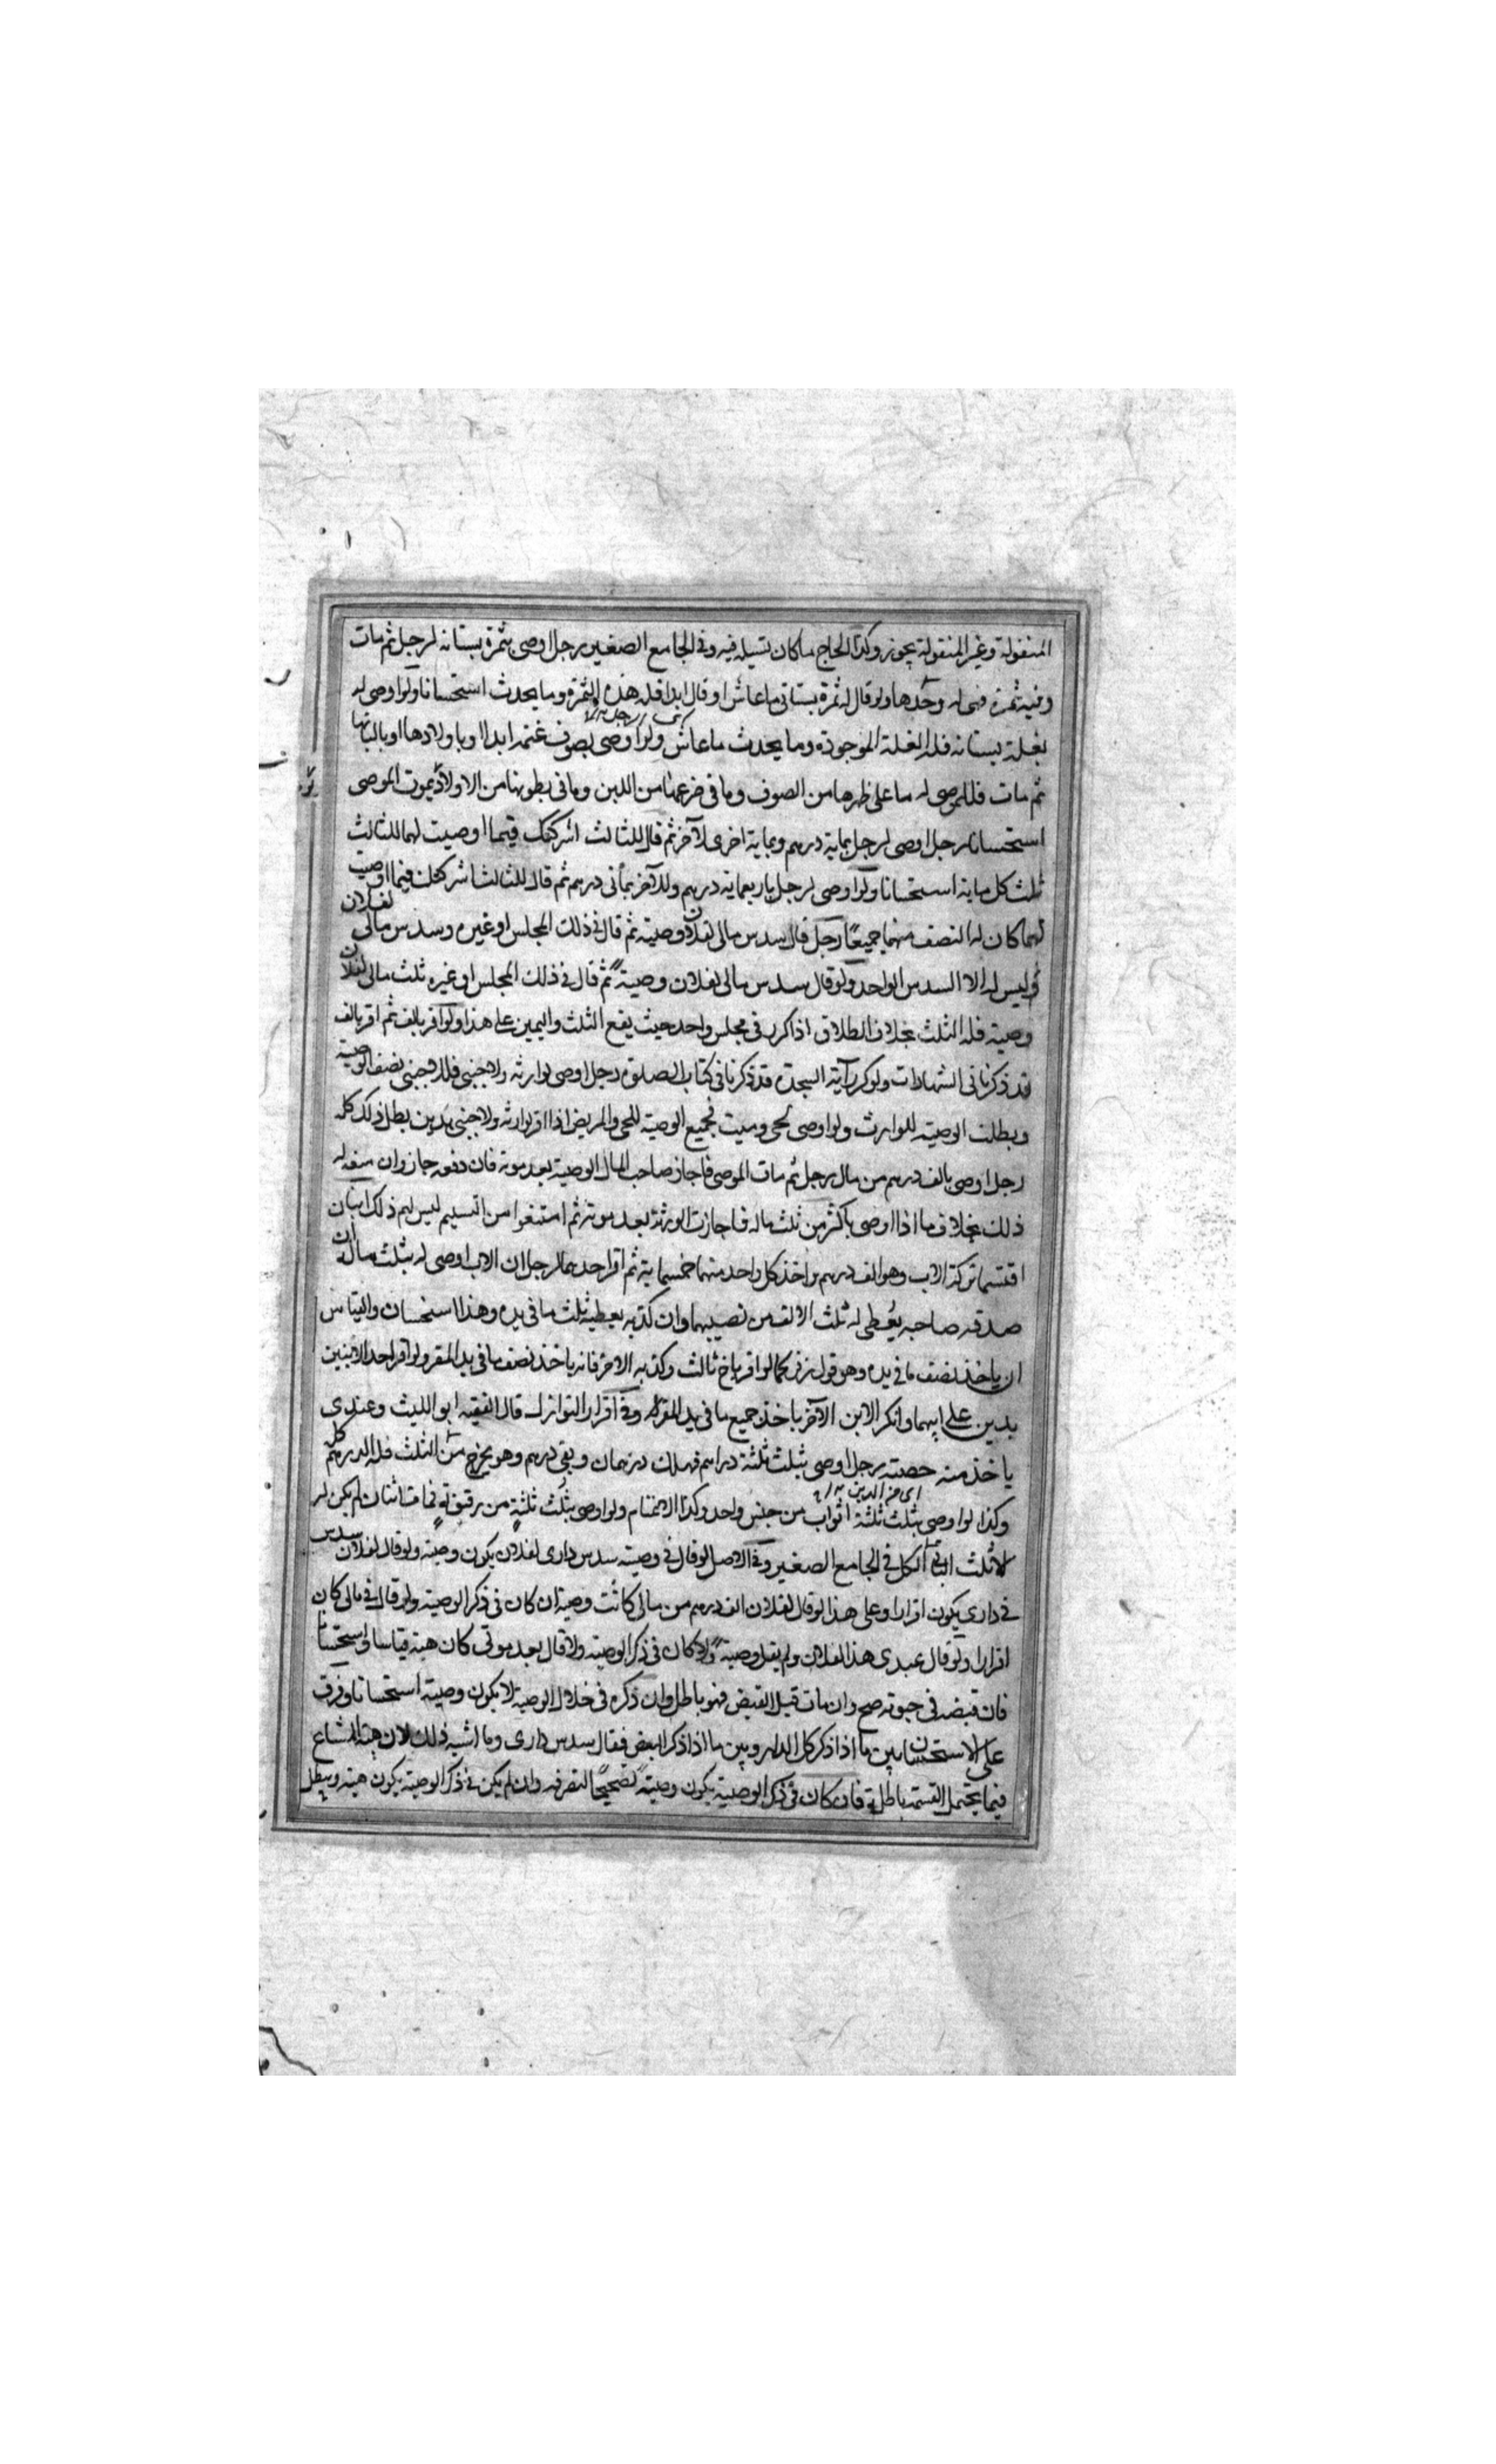 المنقولة وغير المنقولة يجوز وكذا الحاج ما كان تسيله فيه وفى الجامع الصغير رجل اوصى بثمرة بستانه لرجل ثم مات
وفيه ثمرة فهى له وحدها ولو قال له ثمرة بستانى ما عاش او قال ابدا فله هذه الثمرة وما يحدث استحسانا ولو اوصى له
بغلة بستانه فله الغلة الموجودة وما يحدث ما عاش ولو اوصى بصوف غنمه ابدا او باولادها او بالبانها
ثم مات فللموصى له ما على ظهرها من الصوف وما فى ضرعها من اللبن وما فى بطونها من الاولاد يموت الموصى
استحسانا رجل اوصى لرجل بماية درهم وبماية اخرى لآخر ثم قال للثالث اشركتك فيما اوصيت لهما للثالث
ثلث كل ماية استحسانا ولو اوصى لرجل باربعماية درهم وللآخر بمأتى درهم ثم قال للثالث اشركتك فيما اوصيت
لهما كان له النصف منهما جميعًا رجل قال سدس مالى لفلان وصية ثم قال فى ذلك المجلس او غيره وسدس مالى لفلان
وليس له الا السدس الواحد ولو قال سدس مالى لفلان وصية ثم قال فى ذلك المجلس او غيره ثلث مالى لفلان
وصية فله الثلث بخلاف الطلاق اذا كرر فى مجلس واحد حيث يقع الثلث واليمين على هذا ولو اقر بالف ثم اقر بالف
قد ذكرنا فى الشهادات ولو كرر آية السجدة قد ذكرنا فى كتاب الصلوة رجل اوصى لوارثه ولاجنبى فللاجنبى نصف الوصية
وبطلت الوصية للوارث ولو اوصى لحى وميت فجميع الوصية للحى والمريض اذا اقر لوارثه ولاجنبى بدين بطل ذلك كله
رجل اوصى بالف درهم من مال رجل ثم مات الموصى فاجاز صاحب المال الوصية بعد موته فان دفعه جاز وان منعه له
ذلك بخلاف ما اذا اوصى باكثر من ثلث ماله فاجازت الورثة بعد موته ثم امتنعوا من التسليم ليس لهم ذلك ابنان
اقتسما تركة الاب وهو الف درهم واخذ كل واحد منهما خمسماية ثم اقر احدهما لرجل ان الاب اوصى له بثلث ماله ان
صدقه صاحبه يعطى له ثلث الالف من نصيبهما وان كذبه يعطيه ثلث ما فى يده وهذا استحسان والقياس
ان ياخذ نصف ما فى يده وهو قول زفر كما لو اقر باخ ثالث وكذبه الاخر فانه ياخذ نصف ما فى يد المقر ولو اقر احد الابنين
بدين على ابيهما وانكر الابن الآخر ياخذ جميع ما فى يد المقر وفى اقرار النوازل قال الفقيه ابو الليث وعندى
ياخذ منه حصته رجل اوصى بثلث ثلثة دراهم فهلك درهمان وبقى درهم وهو يخرج من الثلث فله الدرهم كله
وكذا لو اوصى بثلث ثلثة اثواب من جنس واحد وكذا الاغنام ولو اوصى بثلث ثلثة من رقيقه فمات اثنان لم يكن له
الا ثلث الباقى الكل فى الجامع الصغير وفى الاصل لو قال فى وصيته سدس دارى لفلان يكون وصية ولو قال لفلان سدس
فى دارى يكون اقرارا وعلى هذا لو قال لفلان الف درهم من مالى كانت وصية ان كان فى ذكر الوصية ولو قال فى مالى كان
اقرارا ولو قال عبدى هذا لفلان ولم يقل وصية ولا كان فى ذكر الوصية ولا قال بعد موتى كان هبة قياسا واستحسانا
فان قبضه فى حيوته صح وان مات قبل القبض فهو باطل وان ذكره فى خلال الوصية لا يكون وصية استحسانا وفرق
على الاستحسان بين ما اذا ذكر كل الدار وبين ما اذا ذكر البعض فقال سدس دارى وما اشبه ذلك لان هبة المشاع
فيما يحتمل القسمة باطلة فان كان فى ذكر الوصية يكون وصية تصحيحًا لتصرفه وان لم يكن فى ذكر الوصية يكون هبة ويبطل